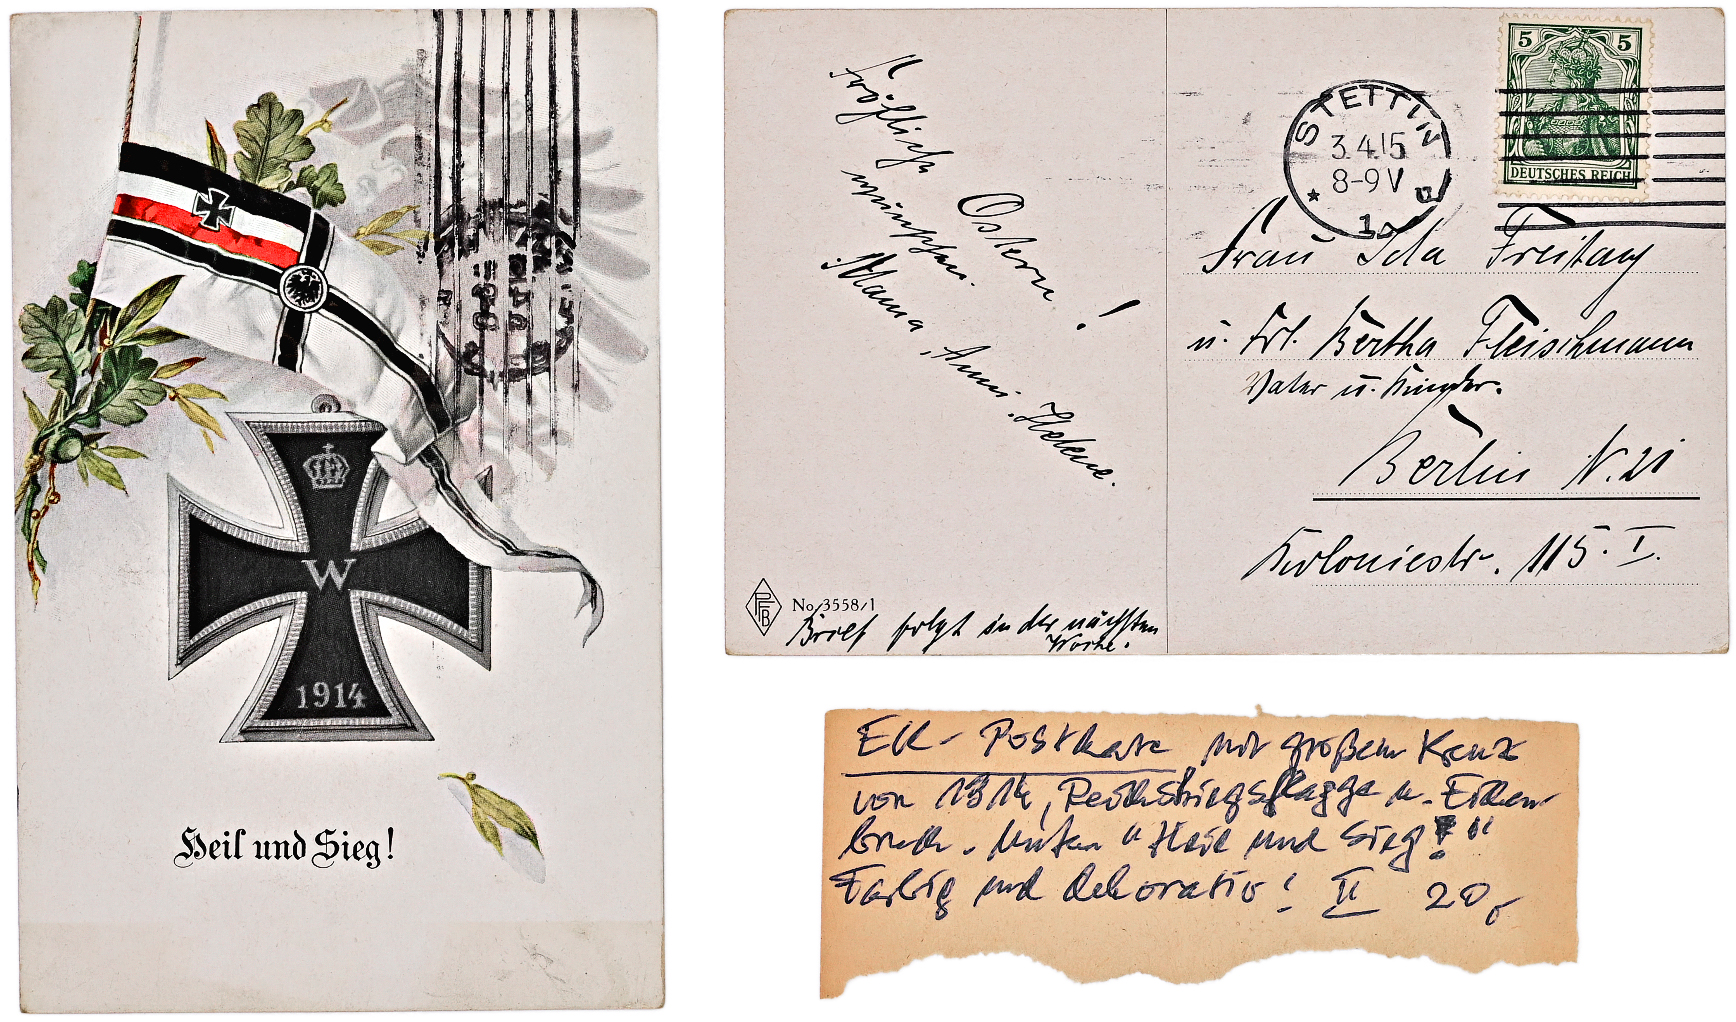 W
1914
Heil und Sieg!
Fröhliche
Ostern!
wünschen
Mama, Anni, Helene.
PFB
No. 3558/1
Brief folgt in der nächsten
Woche.
STETTIN
3.4.15
8-9V
* 1
5 5
DEUTSCHES REICH
Frau Ida Freitag
u. Frl. Bertha Fleischmann
Vater u. Kinder.
Berlin N. 21
Koloniestr. 115. I.
EK-Postkarte mit großem Kreuz
von 1914, Reichskriegsflagge u. Eichen-
bruch. Unten "Heil und Sieg!"
Farbig und dekorativ! II 20,-